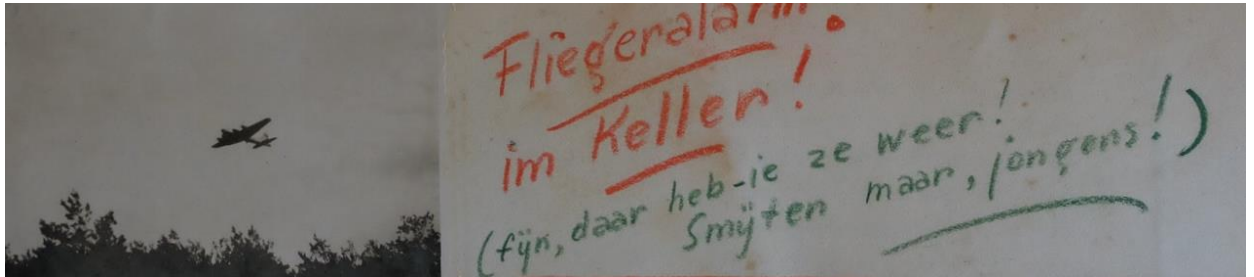 Fliegeralarm!
im Keller!
(fijn, daar heb-ie ze weer!
Smijten maar, jongens!)